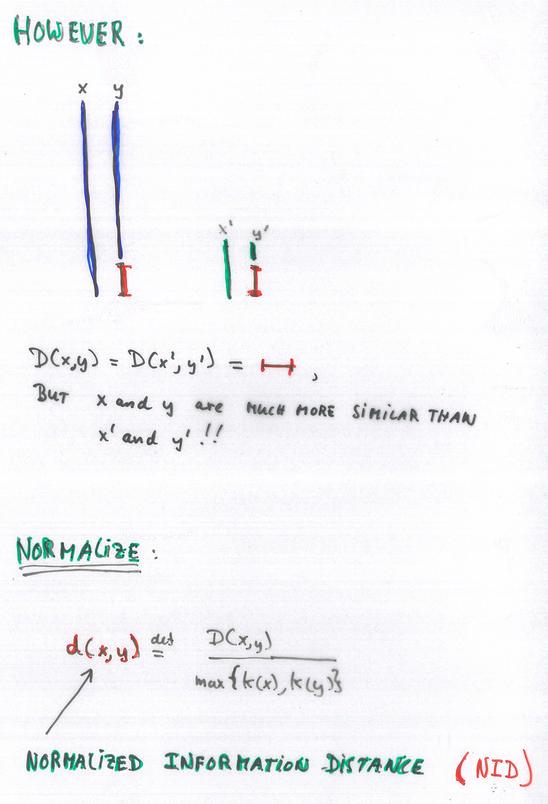 HOWEVER:
x y
x' y'
D(x,y) = D(x',y') = ,
BUT x and y are MUCH MORE SIMILAR THAN
x' and y' !!
NORMALIZE:
d(x,y) def= D(x,y)
max{K(x),K(y)}
NORMALIZED INFORMATION DISTANCE (NID)